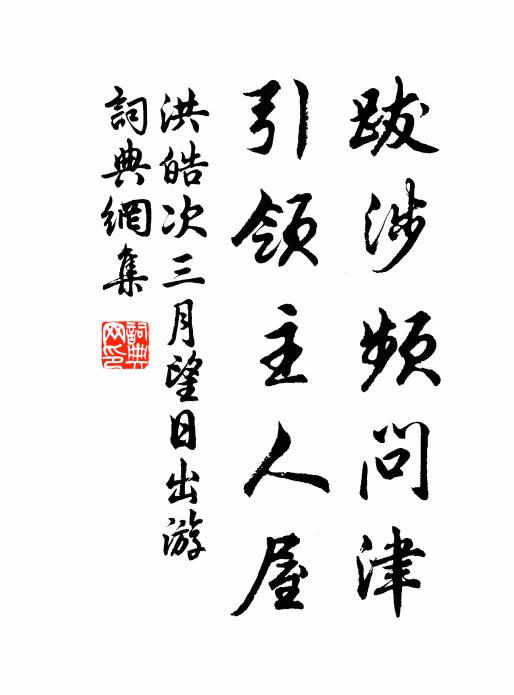 跋涉頻問津
引領主人屋
洪皓次三月望日出游
詞典網集
詞典網印